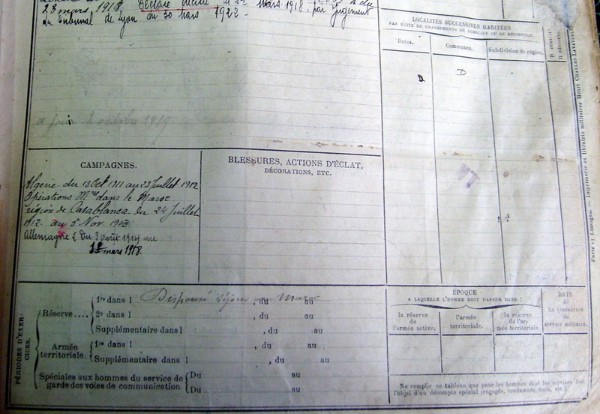 23 mars 1918. Déclaré décédé le 22 mars 1918 par jugement
du tribunal de Lyon du 30 mars 1922
LOCALITÉS SUCCESSIVES HABITÉES
PAR SUITE DE CHANGEMENTS DE DOMICILE OU DE RÉSIDENCE.
Dates.
Communes.
Subdivision de région.
D
CAMPAGNES.
Algérie du 13 Oct 1911 au 23 Juillet 1912
Opérations Mres dans le Maroc
région de Casablanca du 24 Juillet
1912 au 5 Nov. 1913
Allemagne du 2 août 1914 au
mars 1918
BLESSURES, ACTIONS D'ÉCLAT,
DÉCORATIONS, ETC.
PÉRIODES D'EXERCICES.
Réserve
1re dans l , du au
2e dans l , du au
Supplémentaire dans l , du au
Armée territoriale.
1re dans l , du au
Supplémentaire dans l , du au
Spéciales aux hommes du service de garde des voies de communication
Du au
Du au
ÉPOQUE
A LAQUELLE L'HOMME DOIT PASSER DANS :
la réserve de l'armée active.
l'armée territoriale.
la réserve de l'armée territoriale
DATE
de LA LIBÉRATION
du service militaire.
Ne remplir ce tableau que pour les hommes dont les services font
l'objet d'un décompte spécial (engagés, omis, etc.).
Paris et Limoges. — Imprimerie et librairie militaires Henri CHARLES-LAVAUZELLE